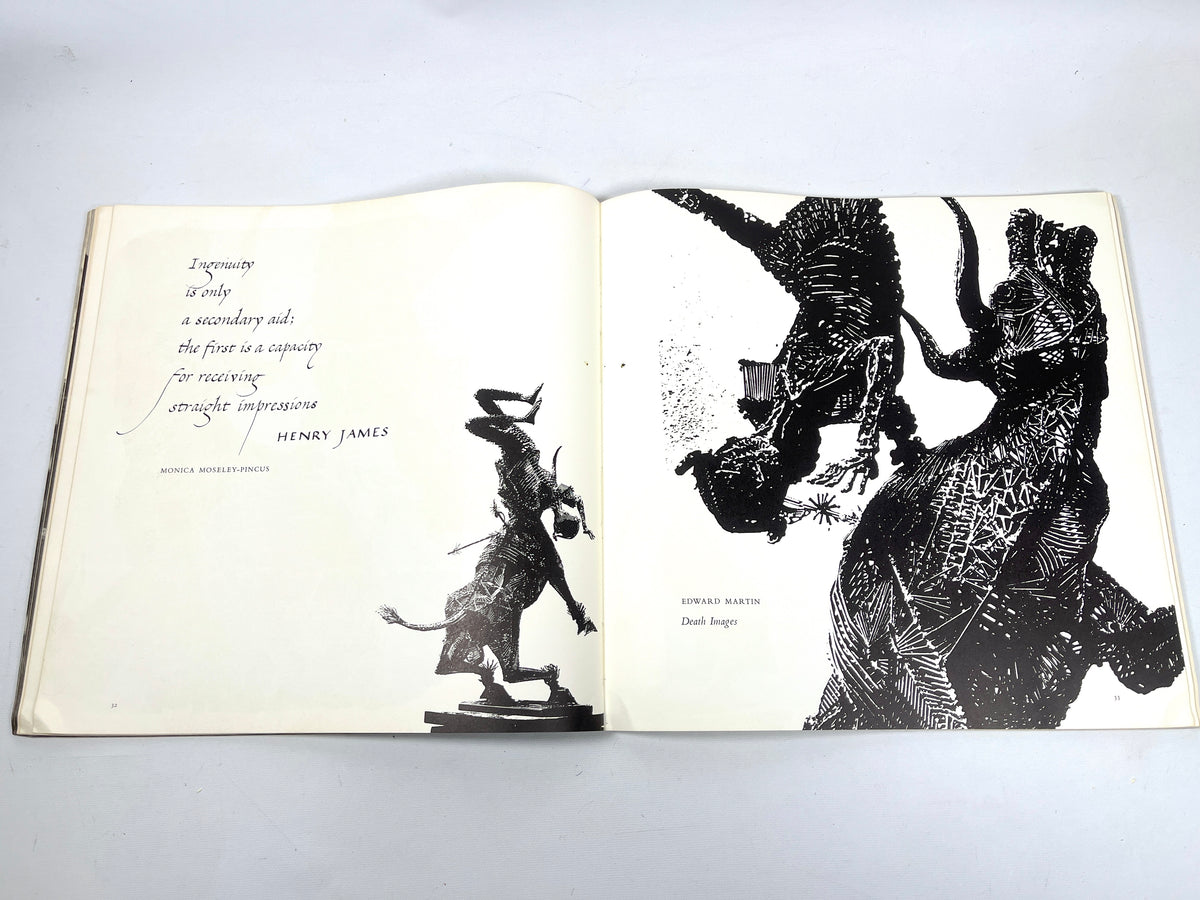 Ingenuity
is only
a secondary aid;
the first is a capacity
for receiving
straight impressions
HENRY JAMES
MONICA MOSELEY-PINCUS
32
EDWARD MARTIN
Death Images
33